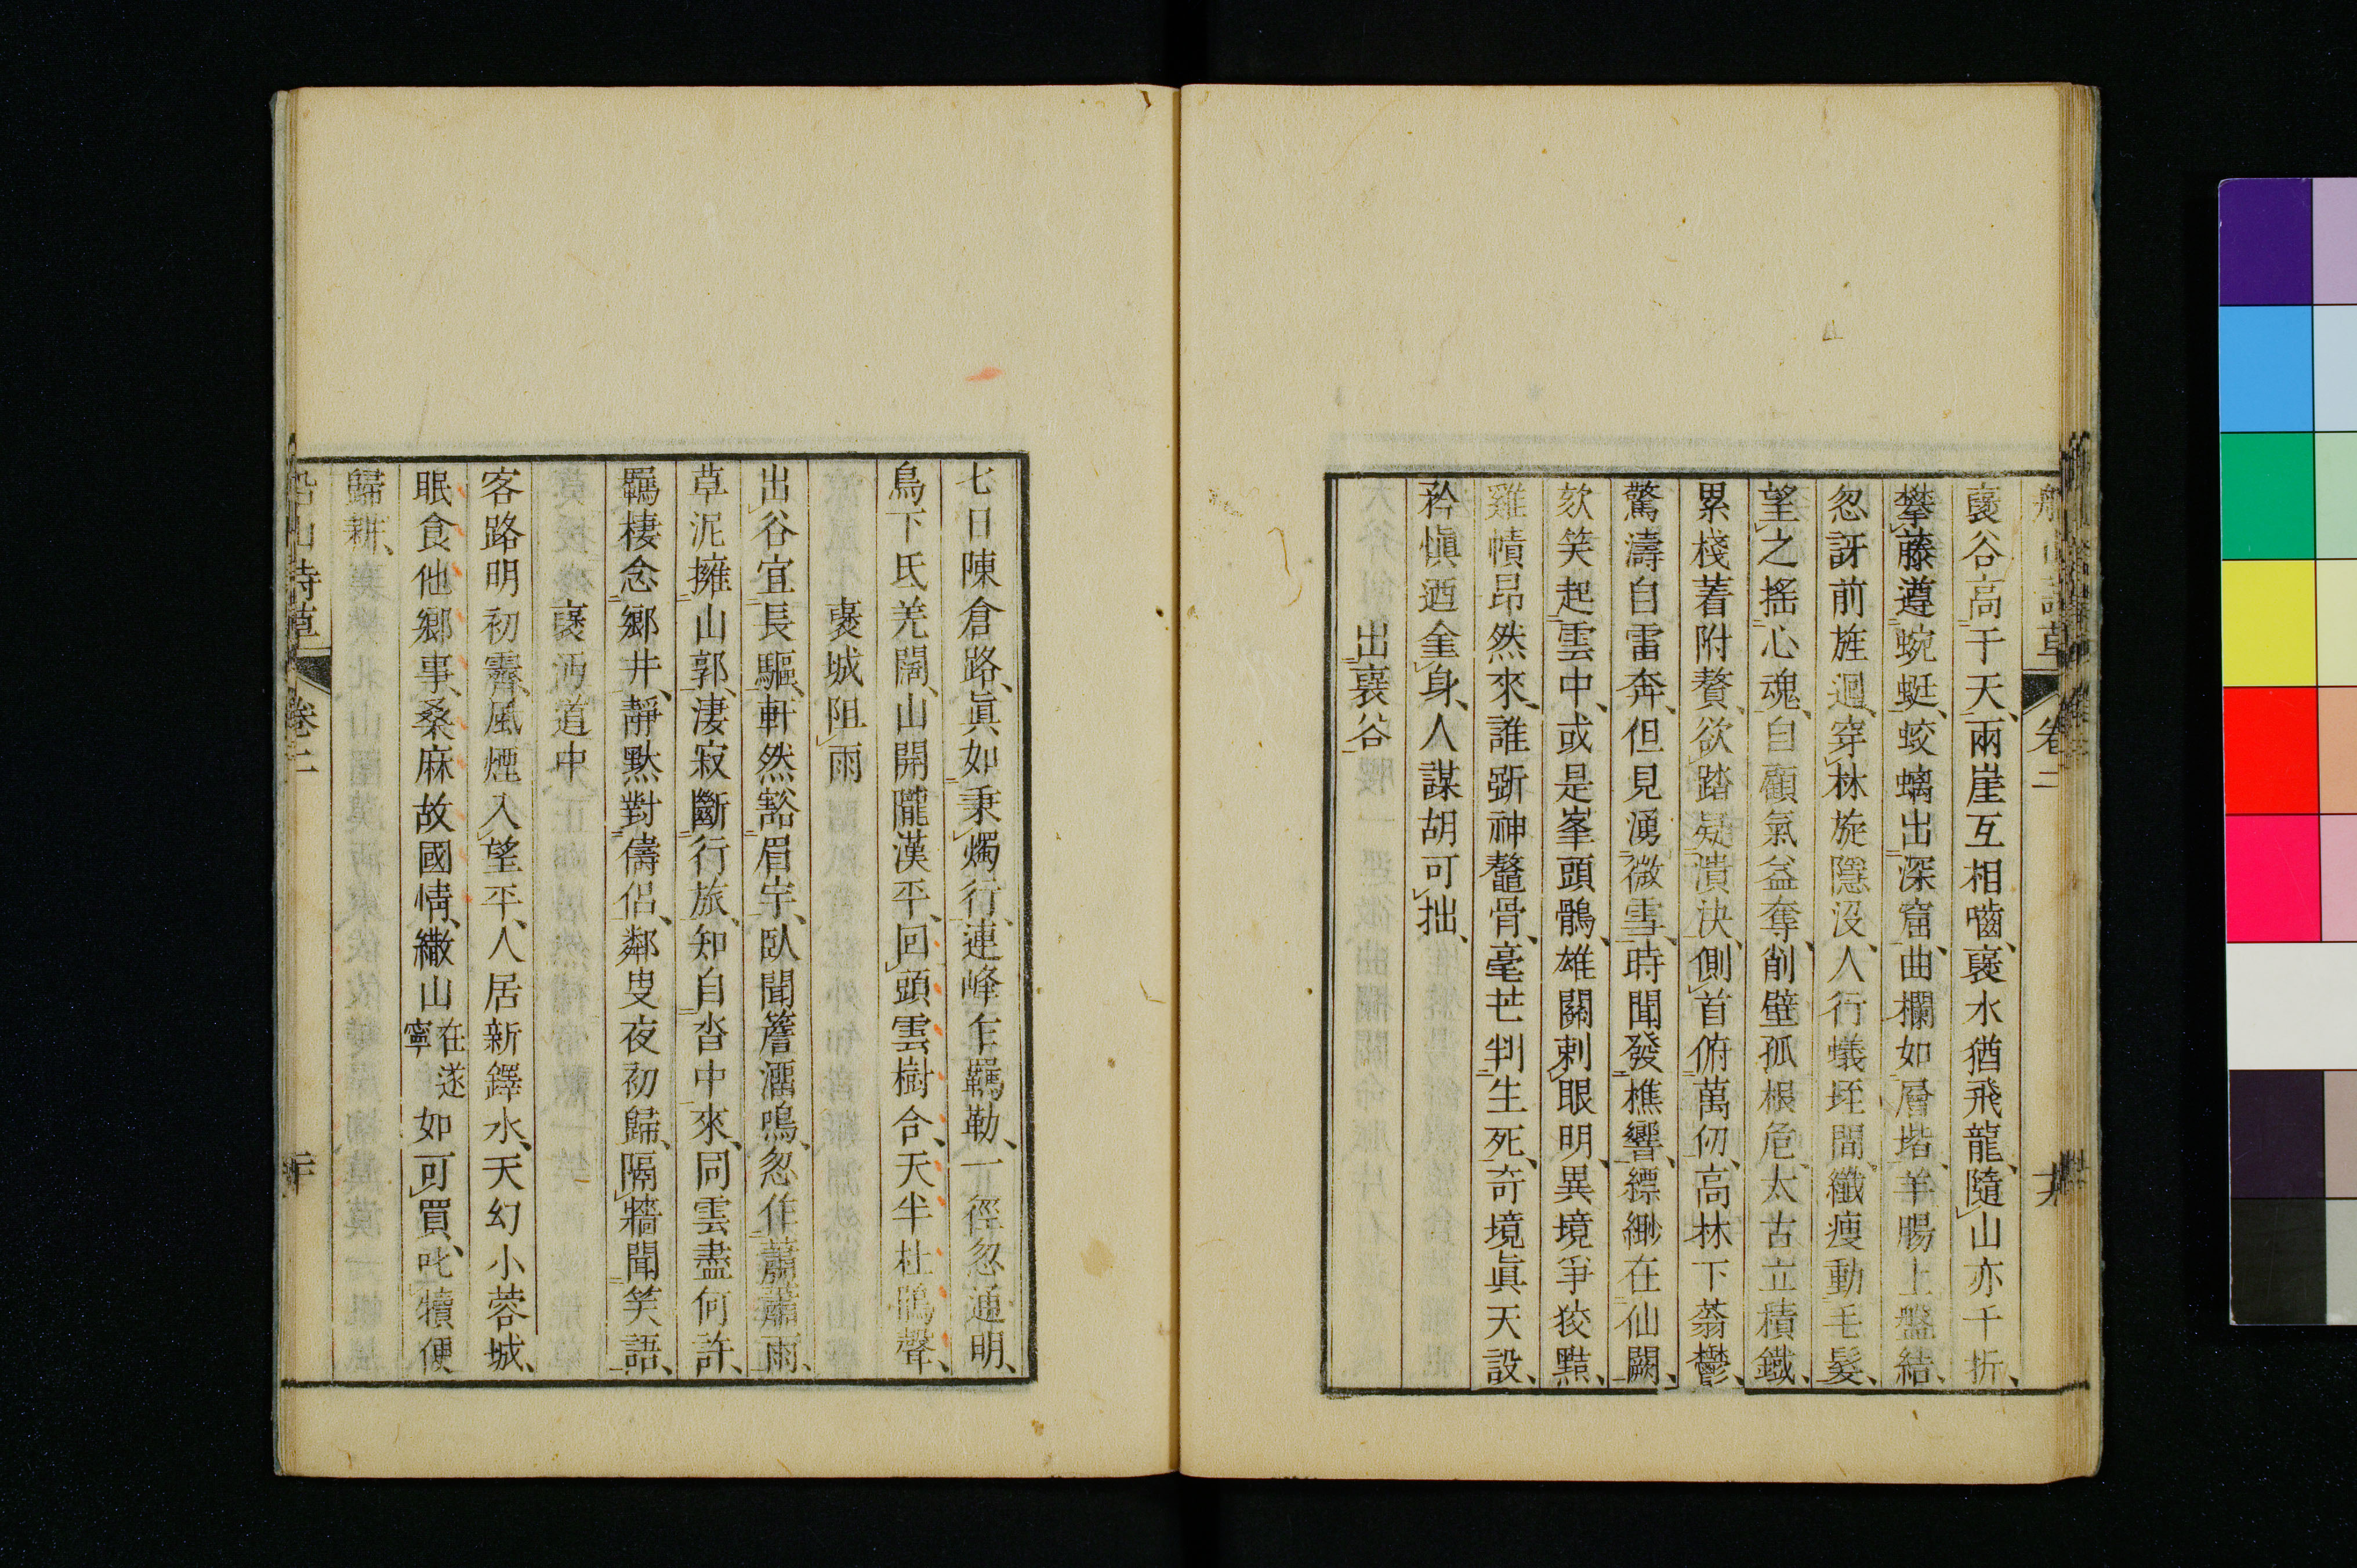 船山詩草 卷二 十九
褒谷高于天、兩崖互相嚙、褒水猶飛龍、隨山亦千折、
攀藤遵蜿蜒、蛟螭出深窟、曲欄如層堦、羊腸上盤結、
忽訝前旌迴、穿林旋隱沒、人行蟻垤間、纖瘦動毛髮、
望之搖心魂、自顧氣益奪、削壁孤根危、太古立積鐵、
累棧著附贅、欲踏疑潰決、側首俯萬仞、高林下蓊鬱、
驚濤自雷奔、但見湧微雪、時聞發樵響、縹緲在仙闕、
欬笑起雲中、或是峯頭鶻、雄關刺眼明、異境爭狡黠、
雞幘昂然來、誰斲神鼇骨、毫芒判生死、奇境眞天設、
矜愼迺全身、人謀胡可拙、
出褒谷
七日陳倉路、眞如秉燭行、連峰乍羈勒、一徑忽通明、
鳥下氐羌闊、山開隴漢平、回頭雲樹合、天半杜鵑聲、
褒城阻雨
出谷宜長驅、軒然豁眉宇、臥聞簷溜鳴、忽作蕭蕭雨、
草泥擁山郭、淒寂斷行旅、知自沓中來、同雲盡何許、
羈棲念鄉井、靜默對儔侶、鄰叟夜初歸、隔牆聞笑語、
褒沔道中
客路明初霽、風煙入望平、人居新鐸水、天幻小蓉城、
眠食他鄉事、桑麻故國情、繖山在遂寧如可買、叱犢便
歸耕、
船山詩草 卷二 二十